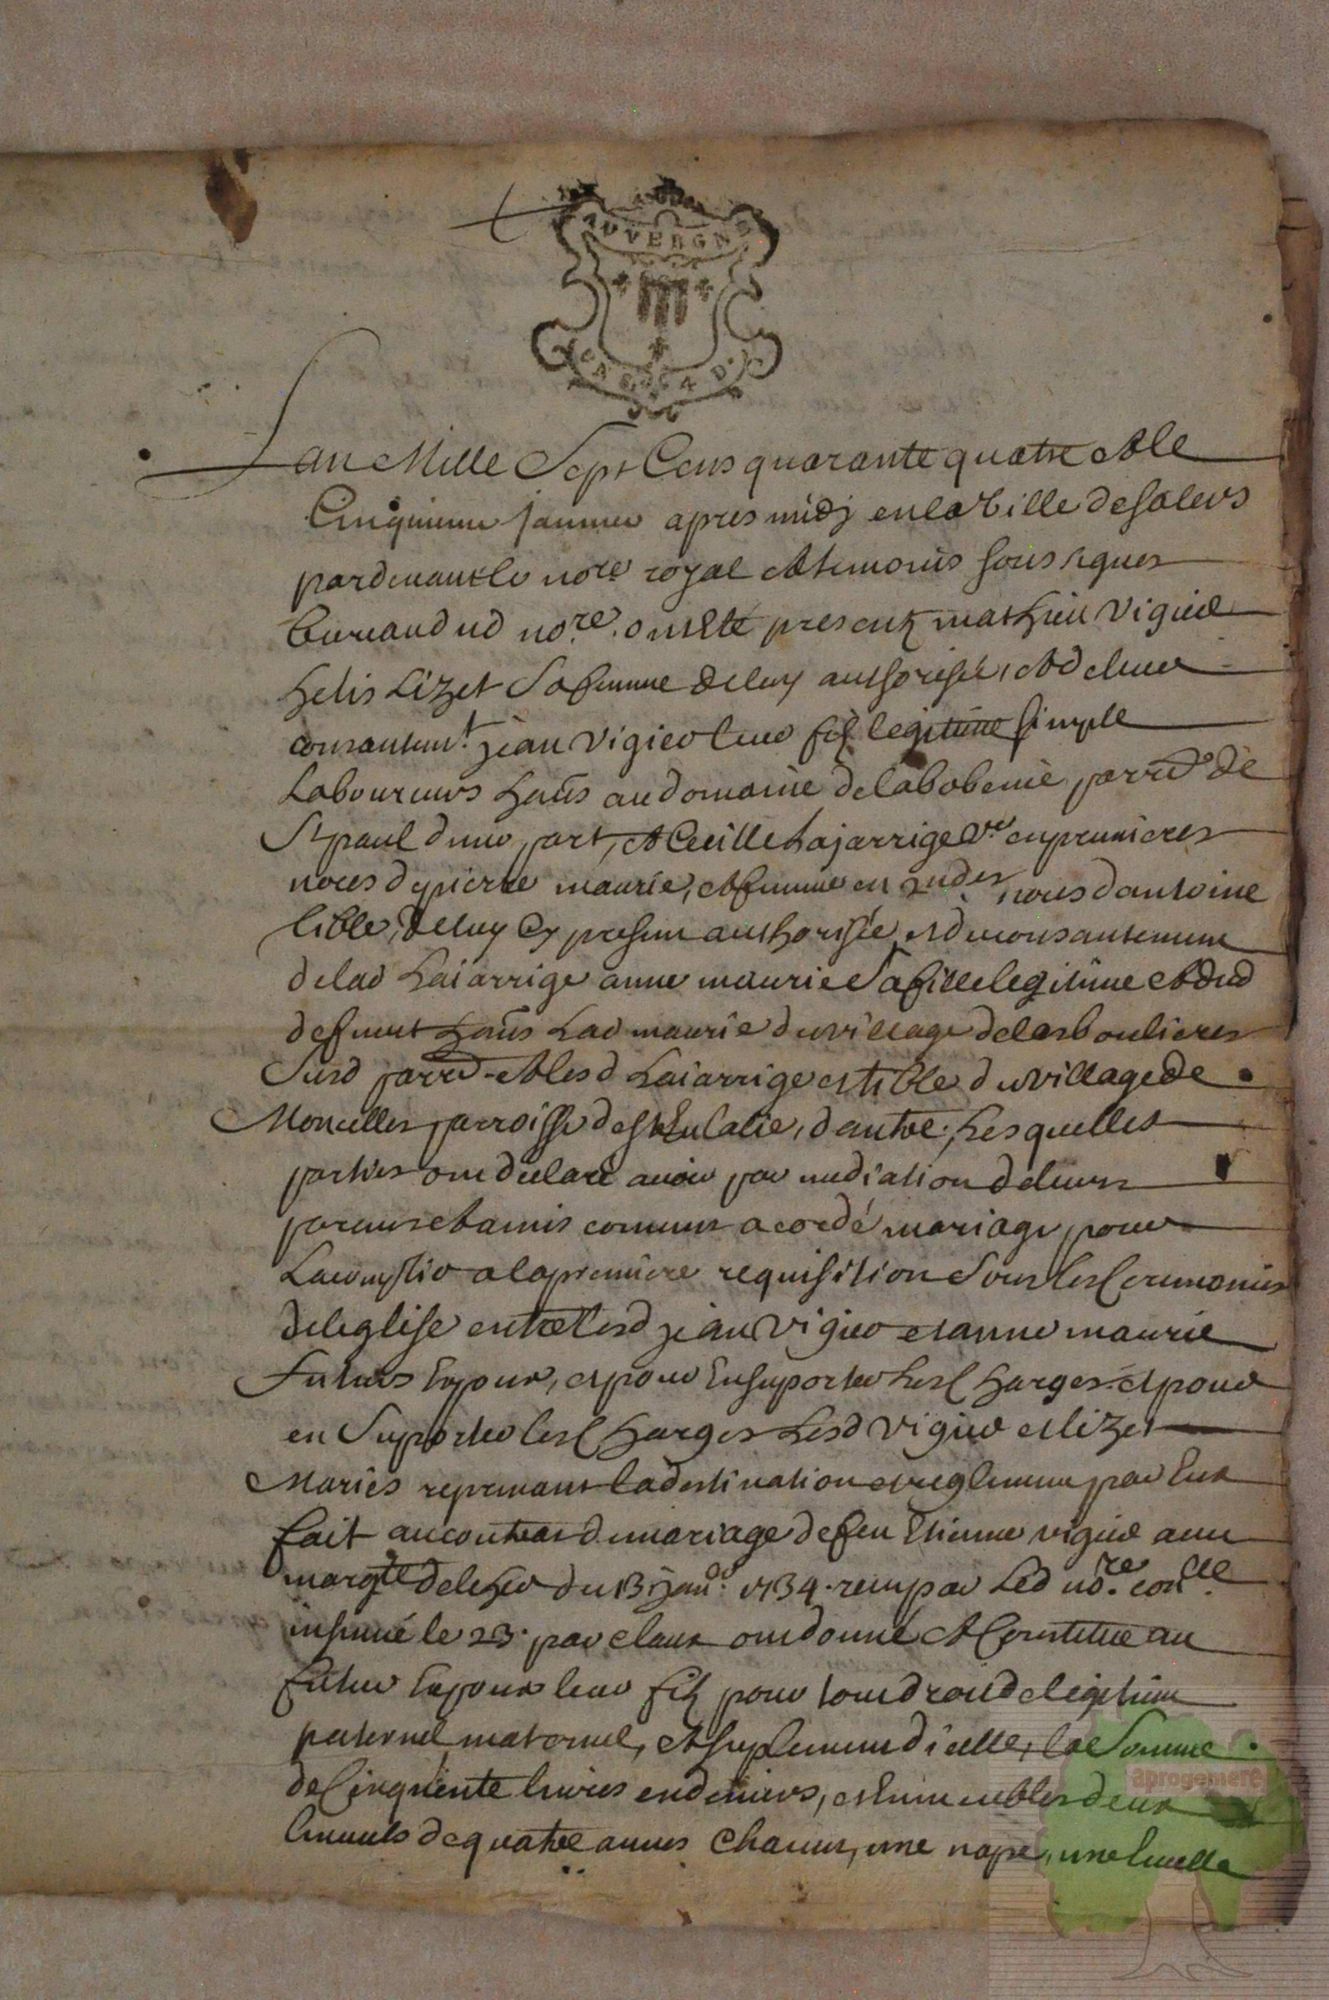 AUVERGNE
Lan Mille Sept Cens quarante quatre & le
Cinquieme janvier apres midj en la Ville de salers
pardevant le nore royal & temoins sous signes
nore. ont Eté presentz mathieu Vigier
helis Lizet Sa femme de luy authorisée, & de leur
consantemt. jean Vigier leur filz legitime simple
Laboureurs hans au domaine de la boberie parrs de
St paul d'une part, & Cecille Lajarrige ve en premieres
noces de pierre maurie, & femme en 2ndes. noces dantoine
tible, de luy Cy present authorisée, et du consantement
de lad Laiarrige anne maurie Sa fille legitime & dud
defunt hans Lad maurie du village de lesboulieres
Susd parrs & lesd Laiarrige et tible du village de
Moncelles parroisse de ste Eulalie, dautre, Lesquelles
parties ont declaré avoir par mediation de leurs
parens et amis comuns acordé mariage pour
Lacomplir a la premiere requisition Sous les Ceremonies
de leglise entre lesd jean Vigier et anne maurie
Futurs Epoux, et pour En suporter Les Charges et pour
en Suporter les Charges Lesd Vigier et lizet
Mariés reprenant la destination et reglement par Eux
fait au contrat de mariage de feu Etienne vigier avec
margte du 13 janr. 1734. receu par Led nore. con
insinué le 23. par eleux ont donné & Constitué au
futur Epoux leur filz pour tout droit de legitime
paternel maternel, & suplement d'icelle, la Somme
de Cinquente livres en deniers, et en meubles deux
linceuls de quatre aunes Chacun, une nape, une
aprogemere